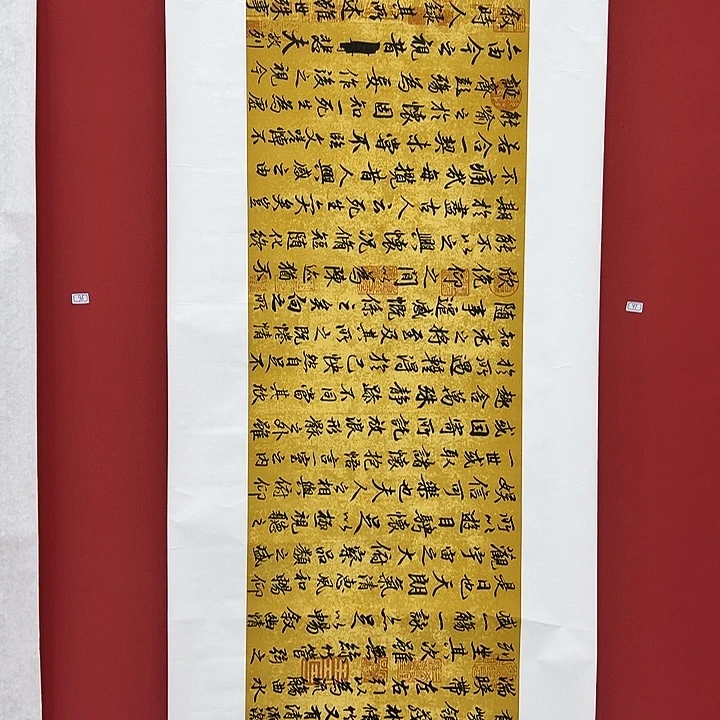 領茂林脩竹又有清流激
湍暎帶左右引以為流觴曲水
列坐其次雖無絲竹管弦之
盛一觴一詠亦足以暢敘幽情
是日也天朗氣清惠風和暢仰
觀宇宙之大俯察品類之盛
所以遊目騁懷足以極視聽之
娛信可樂也夫人之相與俯仰
一世或取諸懷抱悟言一室之內
或因寄所託放浪形骸之外雖
趣舍萬殊靜躁不同當其欣
於所遇暫得於己快然自足不
知老之將至及其所之既惓情
隨事遷感慨係之矣向之所
欣俛仰之間以為陳迹猶不
能不以之興懷況脩短隨化終
期於盡古人云死生亦大矣豈
不痛哉每攬昔人興感之由
若合一契未嘗不臨文嗟悼不
能喻之於懷固知一死生為虛
誕齊彭殤為妄作後之視今
亦由今之視昔悲夫故列
敘時人錄其所述雖世殊事